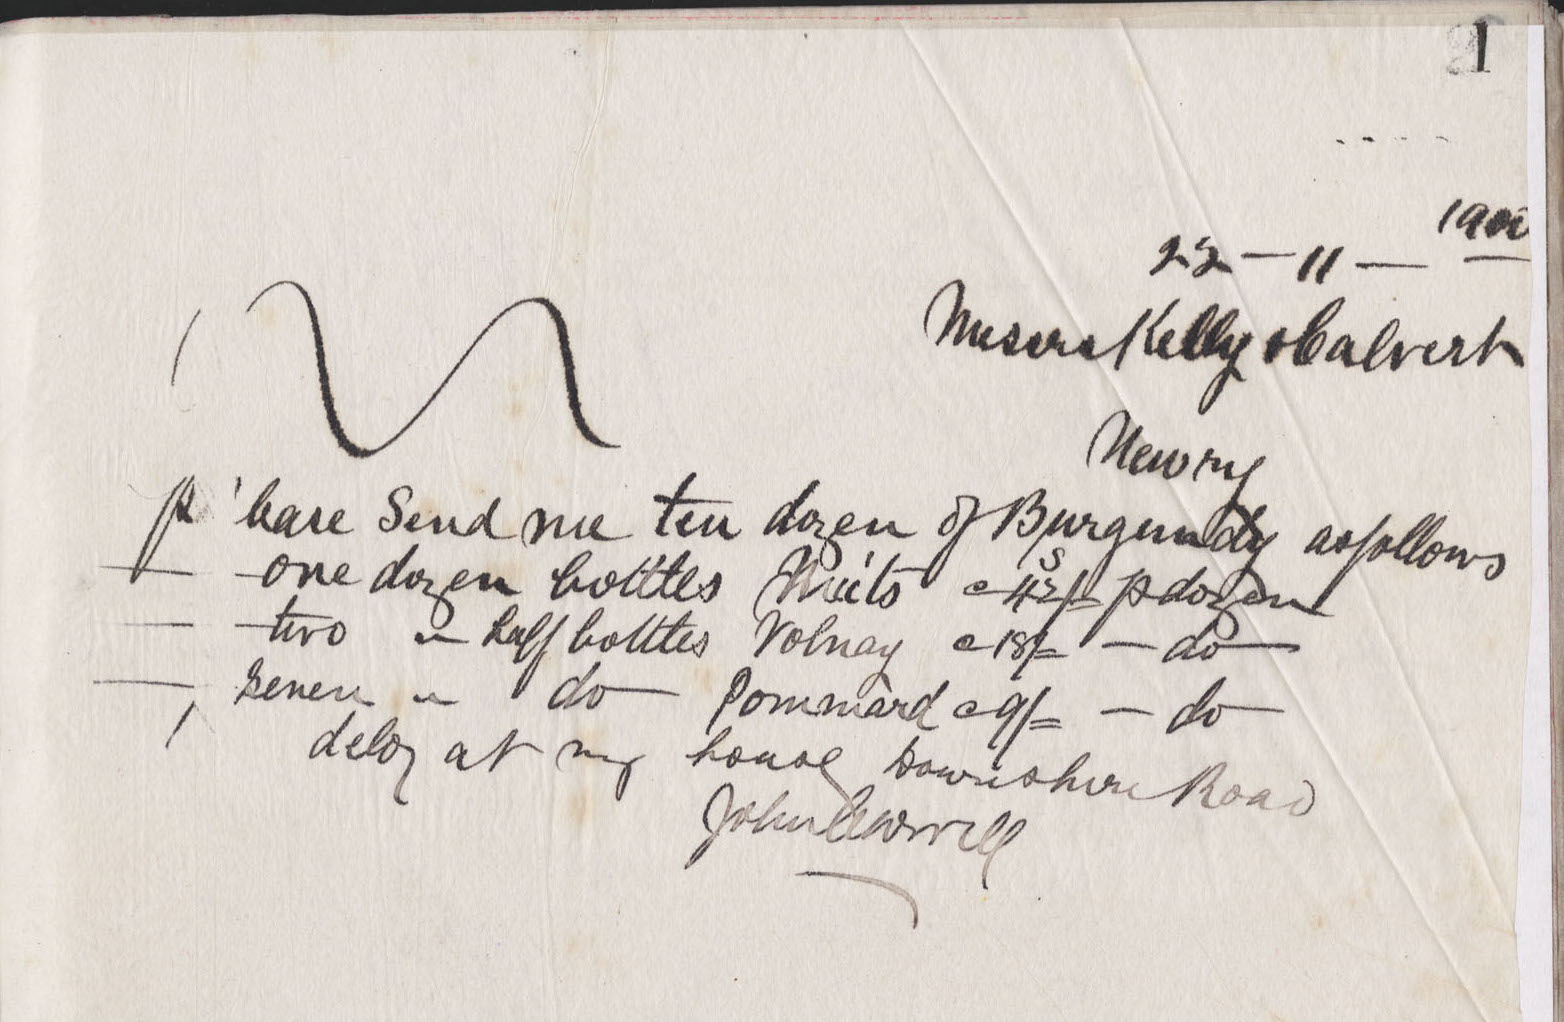 1
1900
22 - 11 -
Messrs Kelly & Calvert
Newry
Please Send me ten dozen of Burgundy as follows
- one dozen bottles Nuits @ 42/= p dozen
- two " half bottles Volnay @ 18/= - do -
- seven " do - Pommard @ 9/= - do -
at my house Downshire Road
John